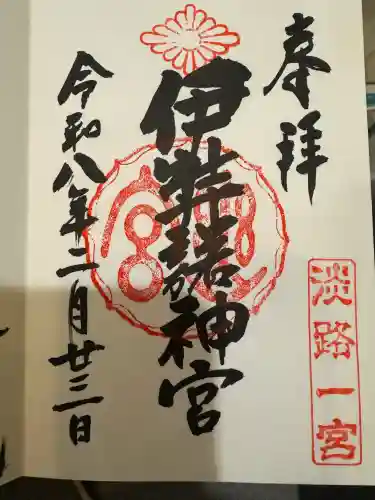 奉拝
淡路一宮
伊弉諾神宮
令和八年二月廿三日